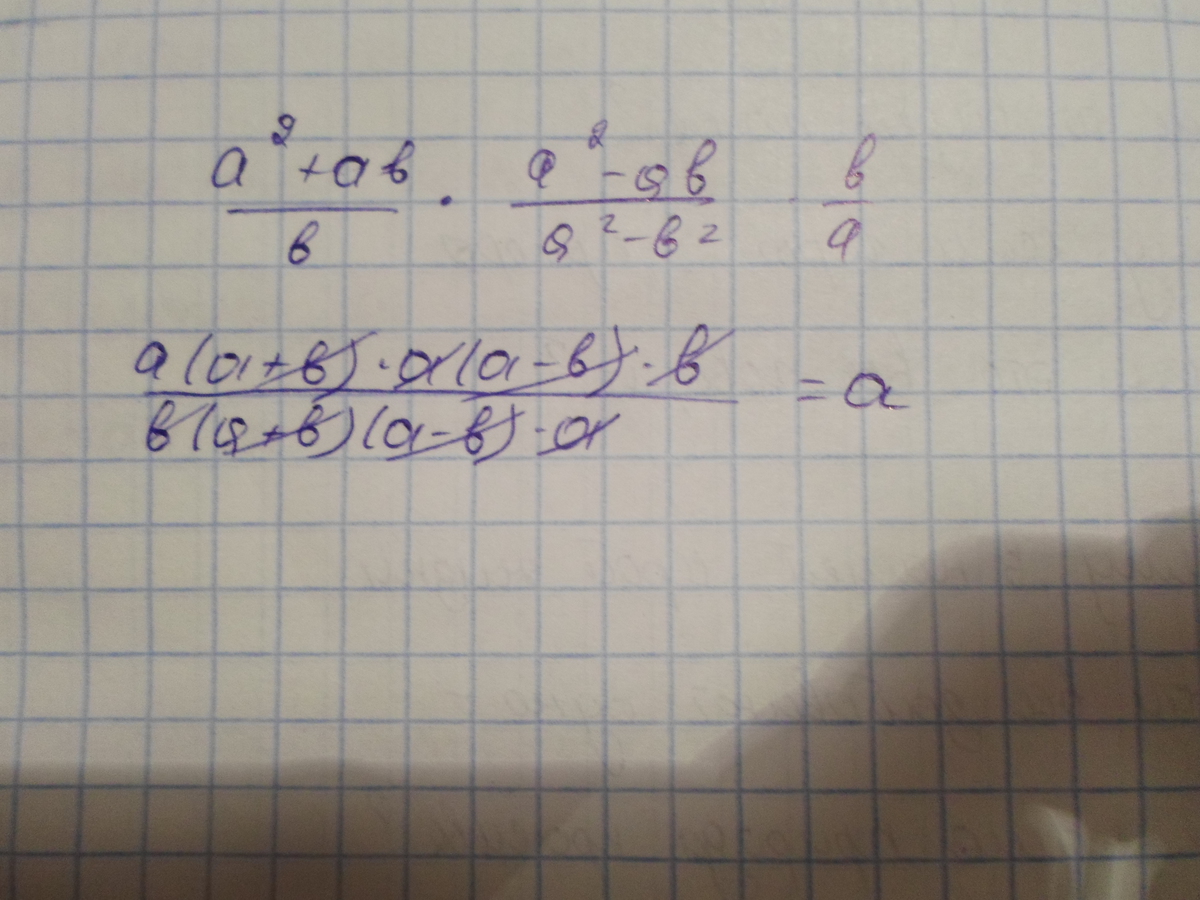 a² + ab / b · a² - ab / a² - b² b / a
a(a+b) · a(a-b) · b / b(a+b)(a-b) · a = a